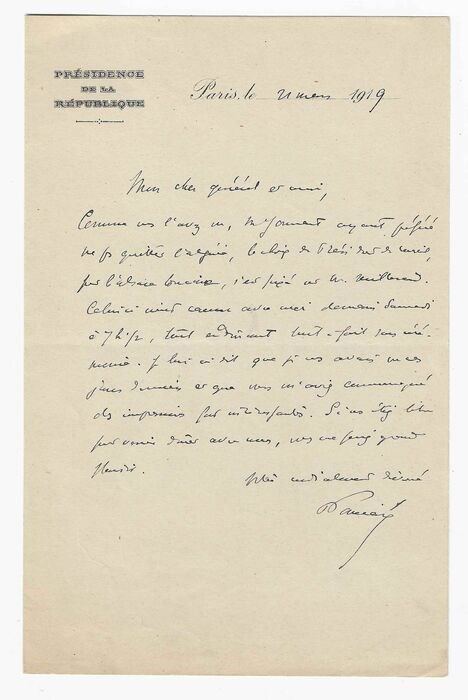 PRÉSIDENCE
DE LA
RÉPUBLIQUE
Paris, le 21 mars 1919
Mon cher général et ami,
Comme vous l'avez vu, M. Jonnart ayant préféré
ne pas quitter l'Algérie, le choix du Président du conseil,
pour l'Alsace Lorraine, s'est fixé sur M. Millerand.
Celui-ci vient causer avec moi demain Samedi
à 7h 1/2, tout en dînant tout-à-fait sans céré-
monie. Je lui ai dit que je vous avais vu ces
jours derniers et que vous m'aviez communiqué
des impressions fort intéressantes. Si vous étiez libre
pour venir dîner avec nous, vous me feriez grand
plaisir.
Votre cordialement dévoué
R Poincaré